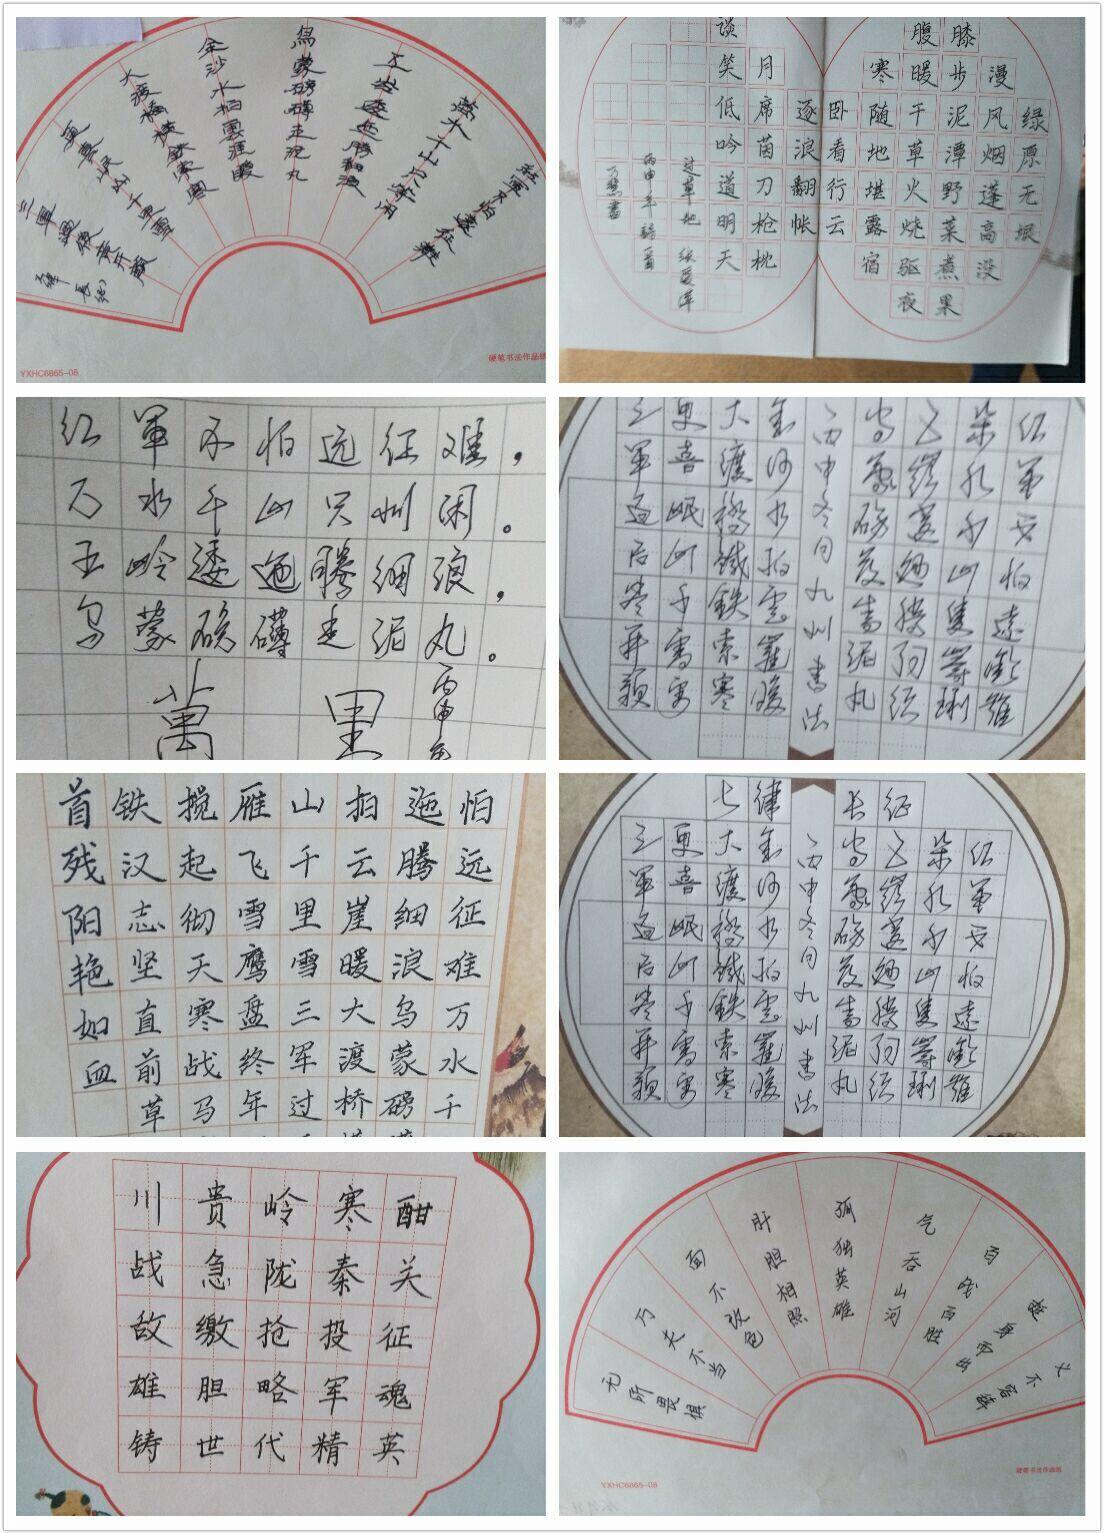 红軍不怕遠征難
萬水千山只等闲
五岭逶迤腾细浪
烏蒙磅礴走泥丸
金沙水拍雲崖暖
大渡橋横鉄索寒
更喜岷山千里雪
三軍過後盡開顔
長征
硬笔书法作品纸
YXHC6865-08
绿原无垠
漫风烟蓬高没
膝步泥潭野菜煮果
腹暖干草火烧驱夜
寒随地堪露宿
卧看行云
逐浪翻帐
月席茵刀枪枕
谈笑低吟道明天
过草地
丙申年
红軍不怕远征难，
万水千山只等闲。
五岭逶迤腾细浪，
乌蒙磅礴走泥丸。
萬里
丙申冬
红軍不怕遠征難
万水千山隻等闲
五岭逶迤腾细浪
烏蒙磅礴走泥丸
丙申冬月九州書法
金沙水拍雲崖暖
大渡橋鐵索寒
更喜岷山千里雪
三軍過后盡开颜
怕远征难万水千
迤腾细浪乌蒙磅
拍云崖暖大渡桥
山千里雪三军过
雁飞雪鹰盘终年
搅起彻天寒战马
铁汉志坚直前草
首残阳艳如血
长征
红軍不怕遠征難
万水千山隻等闲
五岭逶迤腾细浪
烏蒙磅礴走泥丸
丙申冬月九州書法
七律
金沙水拍雲崖暖
大渡橋鐵索寒
更喜岷山千里雪
三軍過后盡开颜
酣关征魂英
寒秦投军精
岭陇抢略代
贵急缴胆世
川战敌雄铸
义不容辞
挺身而出
百战百胜
气吞山河
孤独英雄
肝胆相照
面不改色
万夫不当
无所畏惧
硬笔书法作品纸
YXHC6865-08